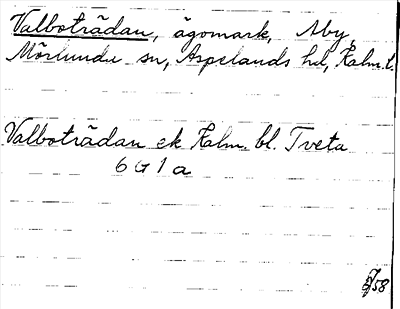 Valboträdan, ägomark, Åby,
Mörlunda sn, Aspelands hd, Kalm. l.
Valboträdan ek Kalm. bl. Tveta
6 G 1 a
58